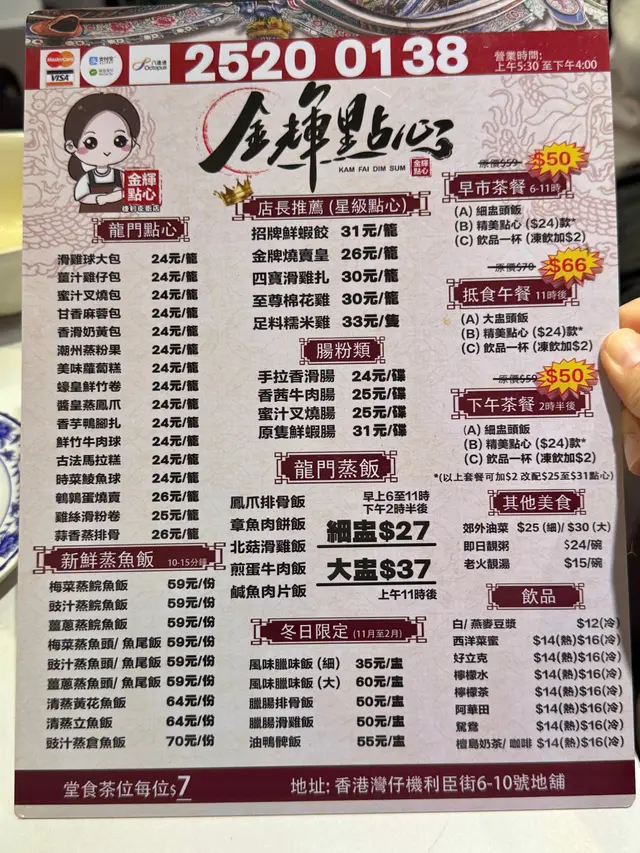 MasterCard
VISA
支付宝
八達通
Octopus
2520 0138
營業時間:
上午5:30 至下午4:00
金輝點心
KAM FAI DIM SUM
金輝
點心
金輝
點心
機利臣街店
龍門點心
滑雞球大包 24元/籠
薑汁雞仔包 24元/籠
蜜汁叉燒包 24元/籠
甘香麻蓉包 24元/籠
香滑奶黃包 24元/籠
潮州蒸粉果 24元/籠
美味蘿蔔糕 24元/籠
蠔皇鮮竹卷 24元/籠
醬皇蒸鳳爪 24元/籠
香芋鴨腳扎 24元/籠
鮮竹牛肉球 24元/籠
古法馬拉糕 24元/籠
時菜鯪魚球 24元/籠
鵪鶉蛋燒賣 26元/籠
雞絲滑粉卷 25元/籠
蒜香蒸排骨 26元/籠
新鮮蒸魚飯 10-15分鐘
梅菜蒸鯇魚飯 59元/份
豉汁蒸鯇魚飯 59元/份
薑蔥蒸鯇魚飯 59元/份
梅菜蒸魚頭/ 魚尾飯 59元/份
豉汁蒸魚頭/ 魚尾飯 59元/份
薑蔥蒸魚頭/ 魚尾飯 59元/份
清蒸黃花魚飯 64元/份
清蒸立魚飯 64元/份
豉汁蒸倉魚飯 70元/份
店長推薦 (星級點心)
招牌鮮蝦餃 31元/籠
金牌燒賣皇 26元/籠
四寶滑雞扎 30元/籠
至尊棉花雞 30元/籠
足料糯米雞 33元/隻
腸粉類
手拉香滑腸 24元/碟
香茜牛肉腸 25元/碟
蜜汁叉燒腸 25元/碟
原隻鮮蝦腸 31元/碟
龍門蒸飯
鳳爪排骨飯
章魚肉餅飯
北菇滑雞飯
煎蛋牛肉飯
鹹魚肉片飯
早上6至11時
下午2時半後
細盅$27
大盅$37
上午11時後
冬日限定 (11月至2月)
風味臘味飯 (細) 35元/盅
風味臘味飯 (大) 60元/盅
臘腸排骨飯 50元/盅
臘腸滑雞飯 50元/盅
油鴨髀飯 55元/盅
原價$59 $50
早市茶餐 6-11時
(A) 細盅頭飯
(B) 精美點心 ($24)款*
(C) 飲品一杯 (凍飲加$2)
原價$70 $66
抵食午餐 11時後
(A) 大盅頭飯
(B) 精美點心 ($24)款*
(C) 飲品一杯 (凍飲加$2)
原價$59 $50
下午茶餐 2時半後
(A) 細盅頭飯
(B) 精美點心 ($24)款*
(C) 飲品一杯 (凍飲加$2)
*(以上套餐可加$2 改配$25至$31點心)
其他美食
郊外油菜 $25 (細)/ $30 (大)
即日靚粥 $24/碗
老火靚湯 $15/碗
飲品
白/ 燕麥豆漿 $12(冷)
西洋菜蜜 $14(熱)$16(冷)
好立克 $14(熱)$16(冷)
檸檬水 $14(熱)$16(冷)
檸檬茶 $14(熱)$16(冷)
阿華田 $14(熱)$16(冷)
鴛鴦 $14(熱)$16(冷)
檀島奶茶/ 咖啡 $14(熱)$16(冷)
堂食茶位每位$7
地址: 香港灣仔機利臣街6-10號地舖